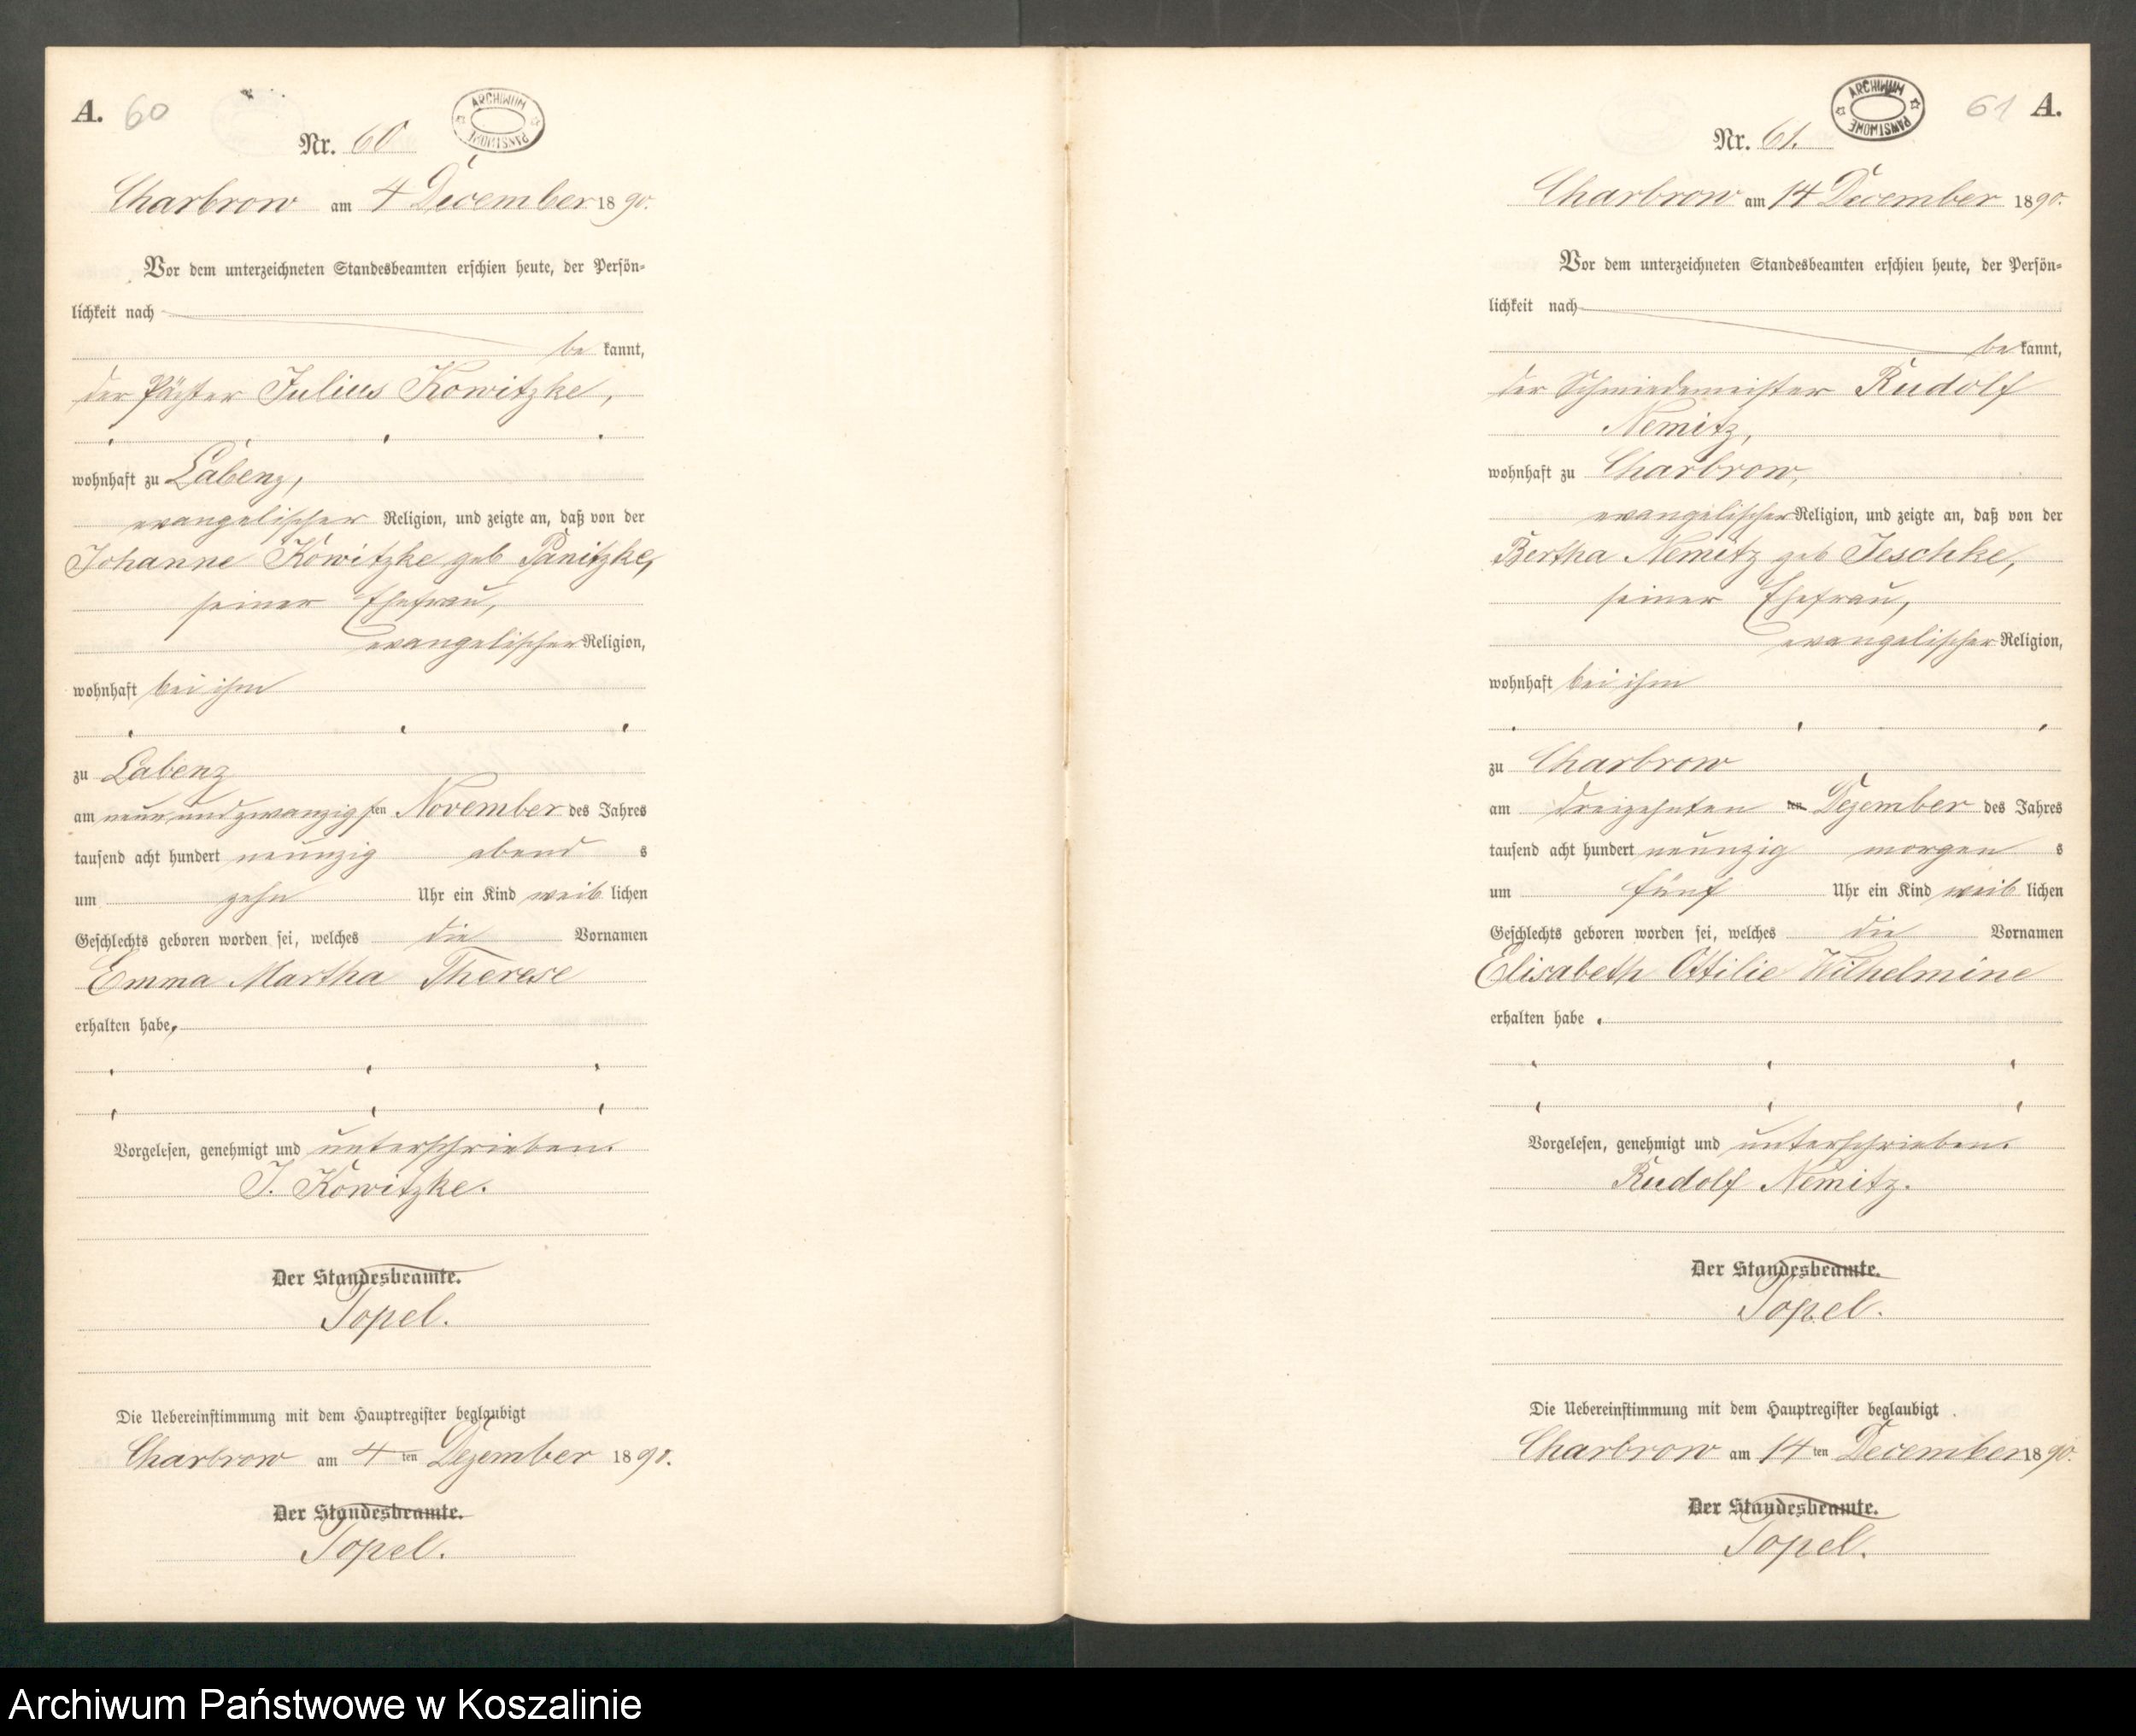 A. 60
ARCHIWUM PAŃSTWOWE
Nr. 60
Charbrow am 4 December 1890.
Vor dem unterzeichneten Standesbeamten erschien heute, der Persön-
lichkeit nach
be kannt,
der Pächter Julius Kowitzke,
wohnhaft zu Labenz,
evangelischer Religion, und zeigte an, daß von der
Johanne Kowitzke geb Panitzke,
seiner Ehefrau,
evangelischer Religion,
wohnhaft bei ihm
zu Labenz
am neun und zwanzigsten November des Jahres
tausend acht hundert neunzig abend s
um zehn Uhr ein Kind weib lichen
Geschlechts geboren worden sei, welches die Vornamen
Emma Martha Therese
erhalten habe,
Vorgelesen, genehmigt und unterschrieben.
J. Kowitzke.
Der Standesbeamte.
Topel.
Die Uebereinstimmung mit dem Hauptregister beglaubigt
Charbrow am 4 ten Dezember 1890.
Der Standesbeamte.
Topel.
ARCHIWUM PAŃSTWOWE
61 A.
Nr. 61.
Charbrow am 14 December 1890.
Vor dem unterzeichneten Standesbeamten erschien heute, der Persön-
lichkeit nach
be kannt,
der Schmiedemeister Rudolf
Nemitz,
wohnhaft zu Charbrow,
evangelischer Religion, und zeigte an, daß von der
Bertha Nemitz geb Jeschke,
seiner Ehefrau,
evangelischer Religion,
wohnhaft bei ihm
zu Charbrow
am dreizehnten ten Dezember des Jahres
tausend acht hundert neunzig morgen s
um fünf Uhr ein Kind weib lichen
Geschlechts geboren worden sei, welches die Vornamen
Elisabeth Ottilie Wilhelmine
erhalten habe.
Vorgelesen, genehmigt und unterschrieben.
Rudolf Nemitz.
Der Standesbeamte.
Topel.
Die Uebereinstimmung mit dem Hauptregister beglaubigt
Charbrow am 14 ten December 1890.
Der Standesbeamte.
Topel.
Archiwum Państwowe w Koszalinie